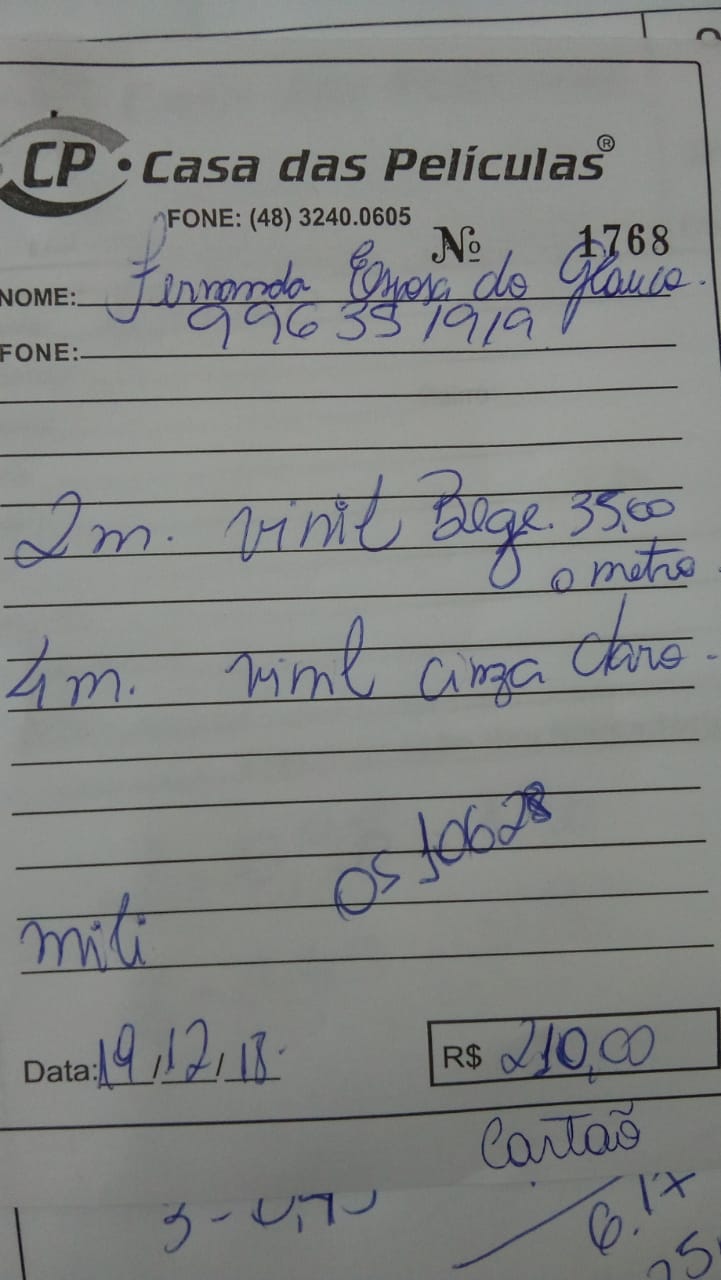 CP • Casa das Películas®
FONE: (48) 3240.0605
Nº 1768
NOME: Fernanda Esposa do Glauco.
FONE: 996351919
2 m. vinil Bege. 35,00
o metro
4 m. vinil cinza claro.
OS 10628
mili
Data: 19/12/18.
R$ 210,00
Cartaõ
6.1x